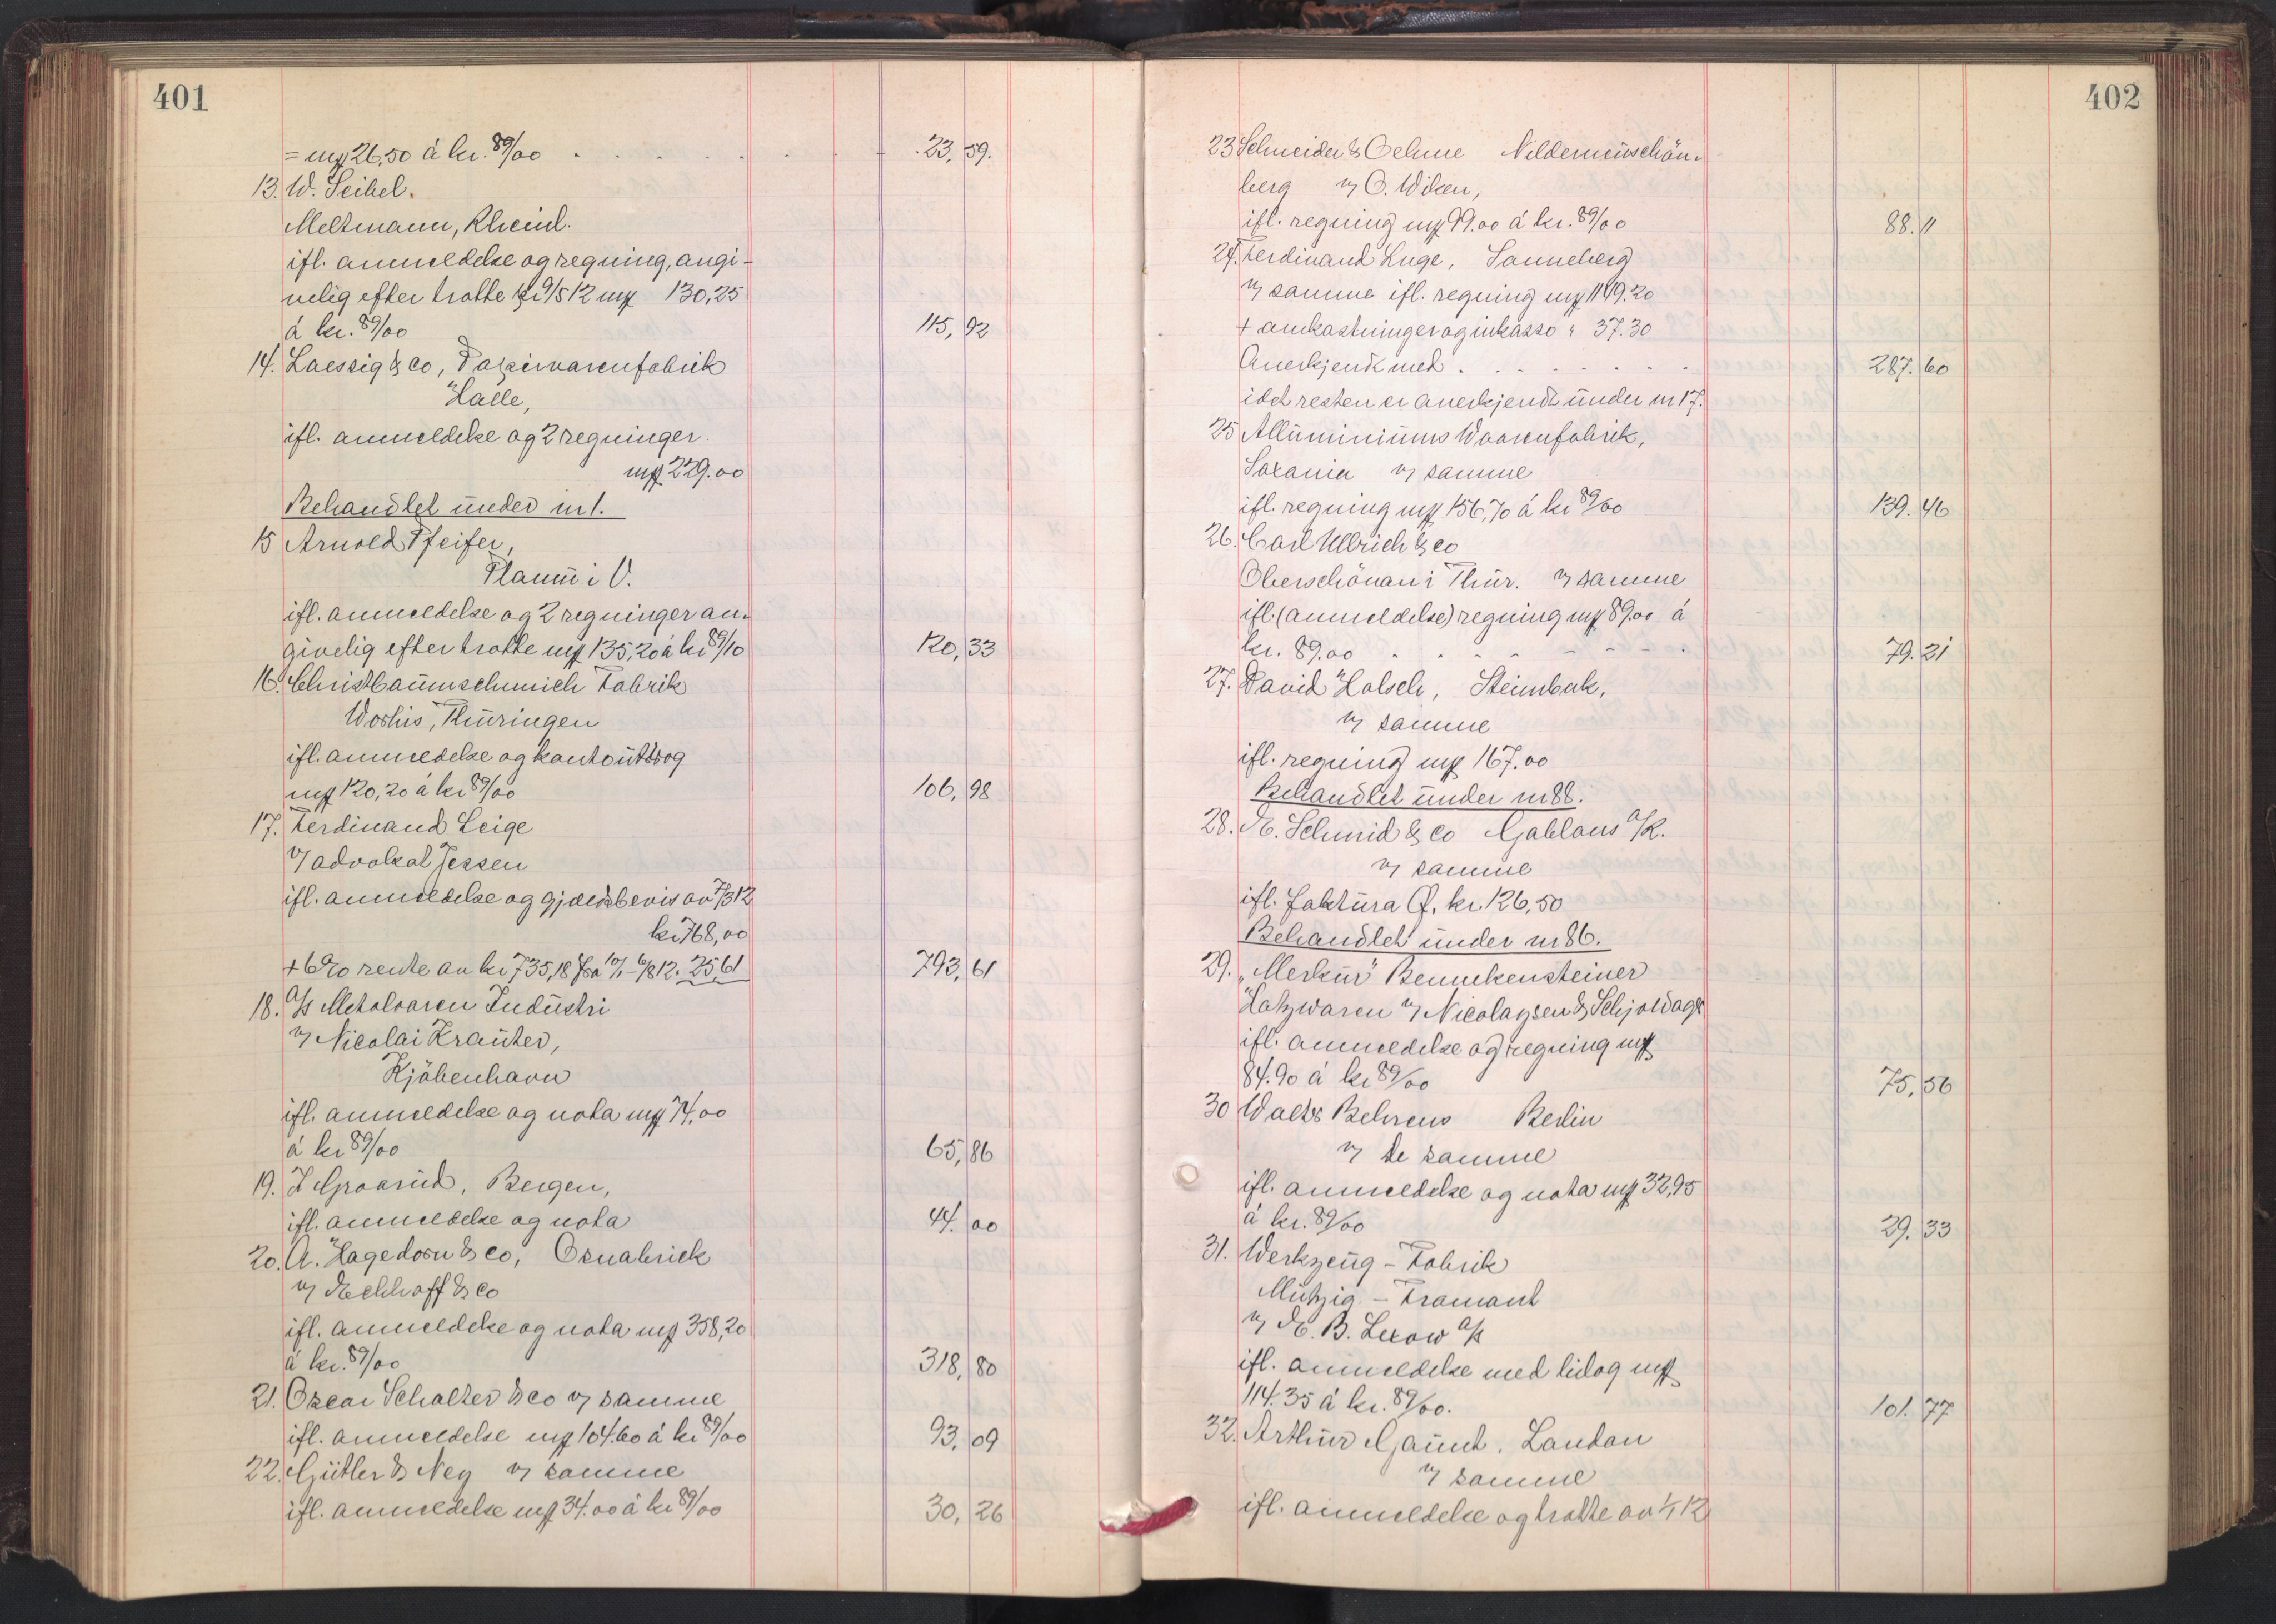 401
= mk 26,50 á kr. 89/00 . . . . . . . 23,59.
13. W. Seibel.
Metmann, Rheinl.
ifl. anmeldelse og regning, angi-
velig efter tratte pr 9/5 12 mk 130,25
á kr. 89/00 115,92
14. Laessig & Co, Papirwarenfabrik
Halle,
ifl. anmeldelse og 2 regninger
mk 229.00
Behandlet under nr 1.
15 Arnold Pfeifer,
Plaum i V.
ifl. anmeldelse og 2 regninger an-
givelig efter tratte mk 135,20 á kr 89/10 120,33
16. Christbaumschmich Fabrik
Worbis, Thüringen
ifl. anmeldelse og kontoutdrag
mk 120,20 á kr 89/00 106,98
17. Ferdinand Leige
v/ advokat Jessen
ifl. anmeldelse og gjældsbevis av 7/3 12
kr 768,00
+ 6% rente av kr 735,18 fra 10/1 - 6/8 12. 25,61 793,61
18. A/s Metalvaren Industri
v/ Nicolai Krauter,
Kjöbenhavn
ifl. anmeldelse og nota mk 74,00
á kr 89/00 65,86
19. I Graarud, Bergen,
ifl. anmeldelse og nota 44.00
20. A. Hagedorn & Co, Osnabrick
v/ Eckhoff & Co
ifl. anmeldelse og nota mk 358,20
á kr. 89/00 318,80
21. Oscar Schaller & Co v/ samme
ifl. anmeldelse mk 104.60 á kr 89/00 93,09
22. Gütler & Ney v/ samme
ifl. anmeldelse mk 34.00 á kr 89/00 30,26
402
23 Schneider & Oehme Nildemeuschön-
berg v/ O. Wiken,
ifl. regning mk 99.00 á kr. 89/00 88.11
24. Ferdinand Luge, Sonneberg
v/ samme ifl. regning mk 1149.20
+ omkostninger og inkasso " 37.30
Anerkjendt med . . . . . . . 287.60
idet resten er anerkjendt under nr 17.
25 Alluminiums Waarenfabrik,
Saxania v/ samme
ifl. regning mk 156,70 á kr 89/00 139.46
26. Carl Ullrich & Co
Oberschönan i Thür. v/ samme
ifl. (anmeldelse) regning mk 89.00 á
kr. 89.00 . . . . . . . 79.21
27. David Holsch, Steinbak,
v/ samme
ifl. regning mk 167.00
Behandlet under nr 88.
28. E. Schmid & Co Gablons a/K.
v/ samme
ifl. faktura Q. kr. 126,50
Behandlet under nr 86.
29. "Merkur" Bennekensteiner
Holzwaren v/ Nicolaysen & Schjoldager
ifl. anmeldelse og regning mk
84.90 á kr 89/00 75,56
30 Walter Behrens Berlin
v/ de samme
ifl. anmeldelse og nota mk 32,95
á kr. 89/00 29.33
31. Werkzeug - Fabrik
Mützig - Framant
v/ E. B. Lexow A/s
ifl. anmeldelse med bilag mk
114.35 á kr. 89/00. 101.77
32. Arthur Gaunt. London
v/ samme
ifl. anmeldelse og tratte av 4/1 12